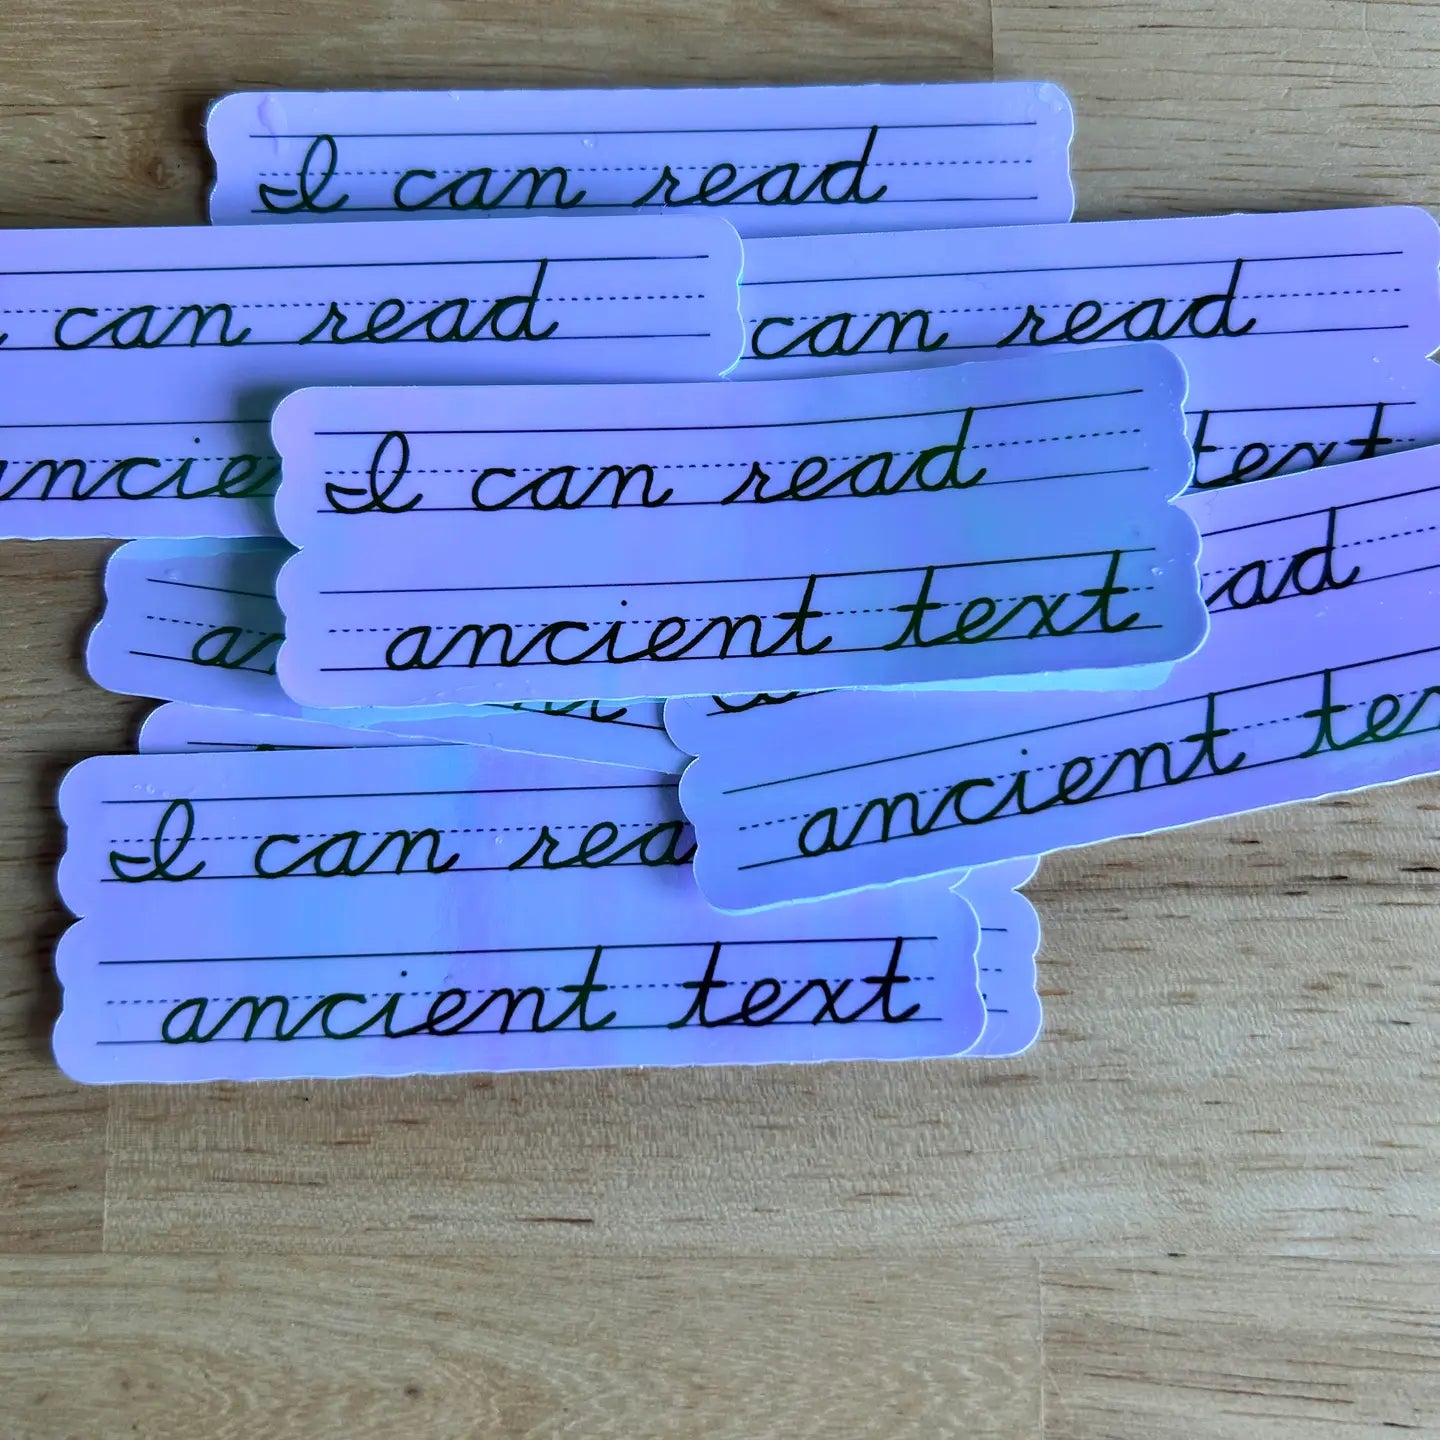 I can read
can read
ancie
can read
text
I can read
ancient text
ad
an
ancient te
I can rea
ancient text